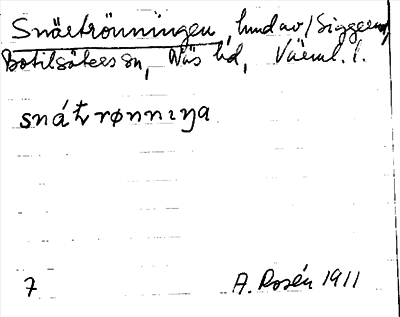 Snärtrönningen, hmd av / Siggerud,
Botilsäters sn, Näs hd, Värml. l.
snát̵rønnıŋa
7 A. Rosén 1911